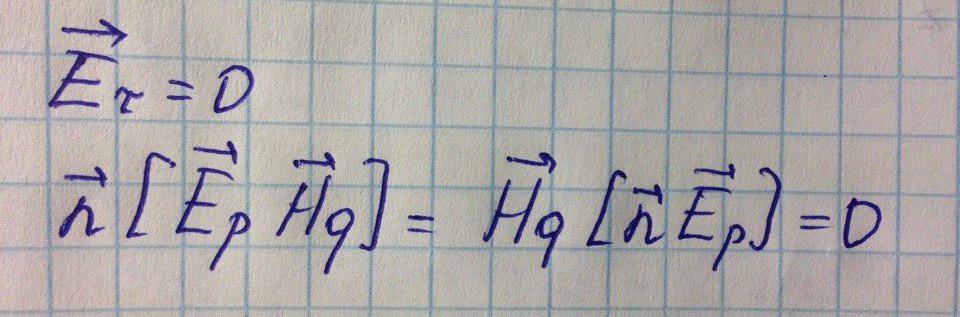 $\vec{E}_\tau = 0$
$\vec{n} [\vec{E}_p \vec{H}_q] = \vec{H}_q [\vec{n} \vec{E}_p] = 0$